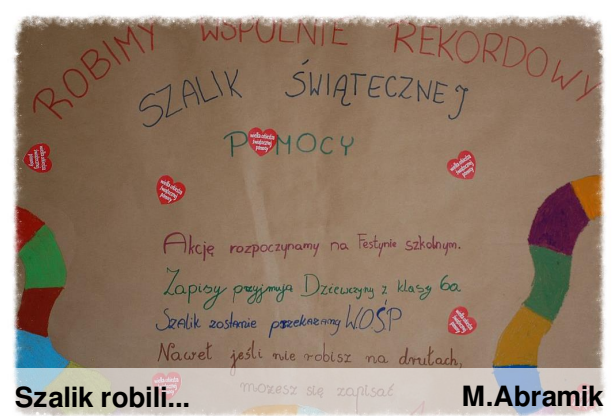 ROBIMY WSPÓLNIE REKORDOWY
SZALIK ŚWIĄTECZNEJ
POMOCY
Akcję rozpoczynamy na Festynie szkolnym.
Zapisy przyjmują Dziewczyny z klasy 6a.
Szalik zostanie przekazany WOŚP
Nawet jeśli nie robisz na drutach,
możesz się zapisać
Szalik robili...
M.Abramik